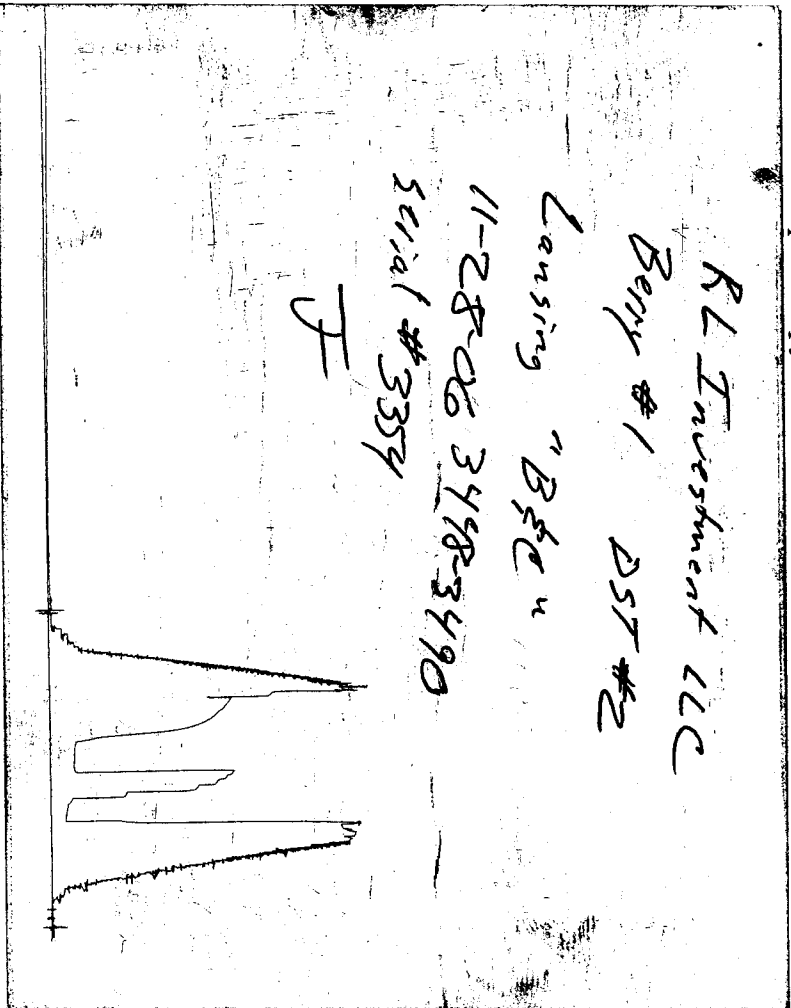 RL Investment LLC
Berry #1 DST #2
Lansing "B&C"
11-28-06 3448-3490
Serial #3354